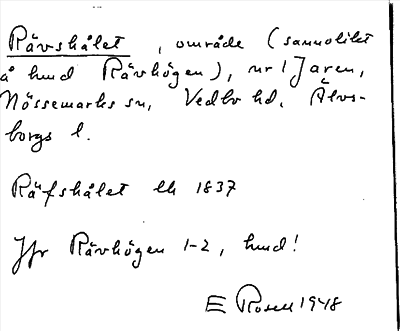 Rävshålet, område (sannolikt
å hmd Rävhögen), nr 1 Jaren,
Nössemarks sn, Vedbo hd, Älvs-
borgs l.
Räfshålet lh 1837
Jfr Rävhögen 1-2, hmd!
E Rosell 1948